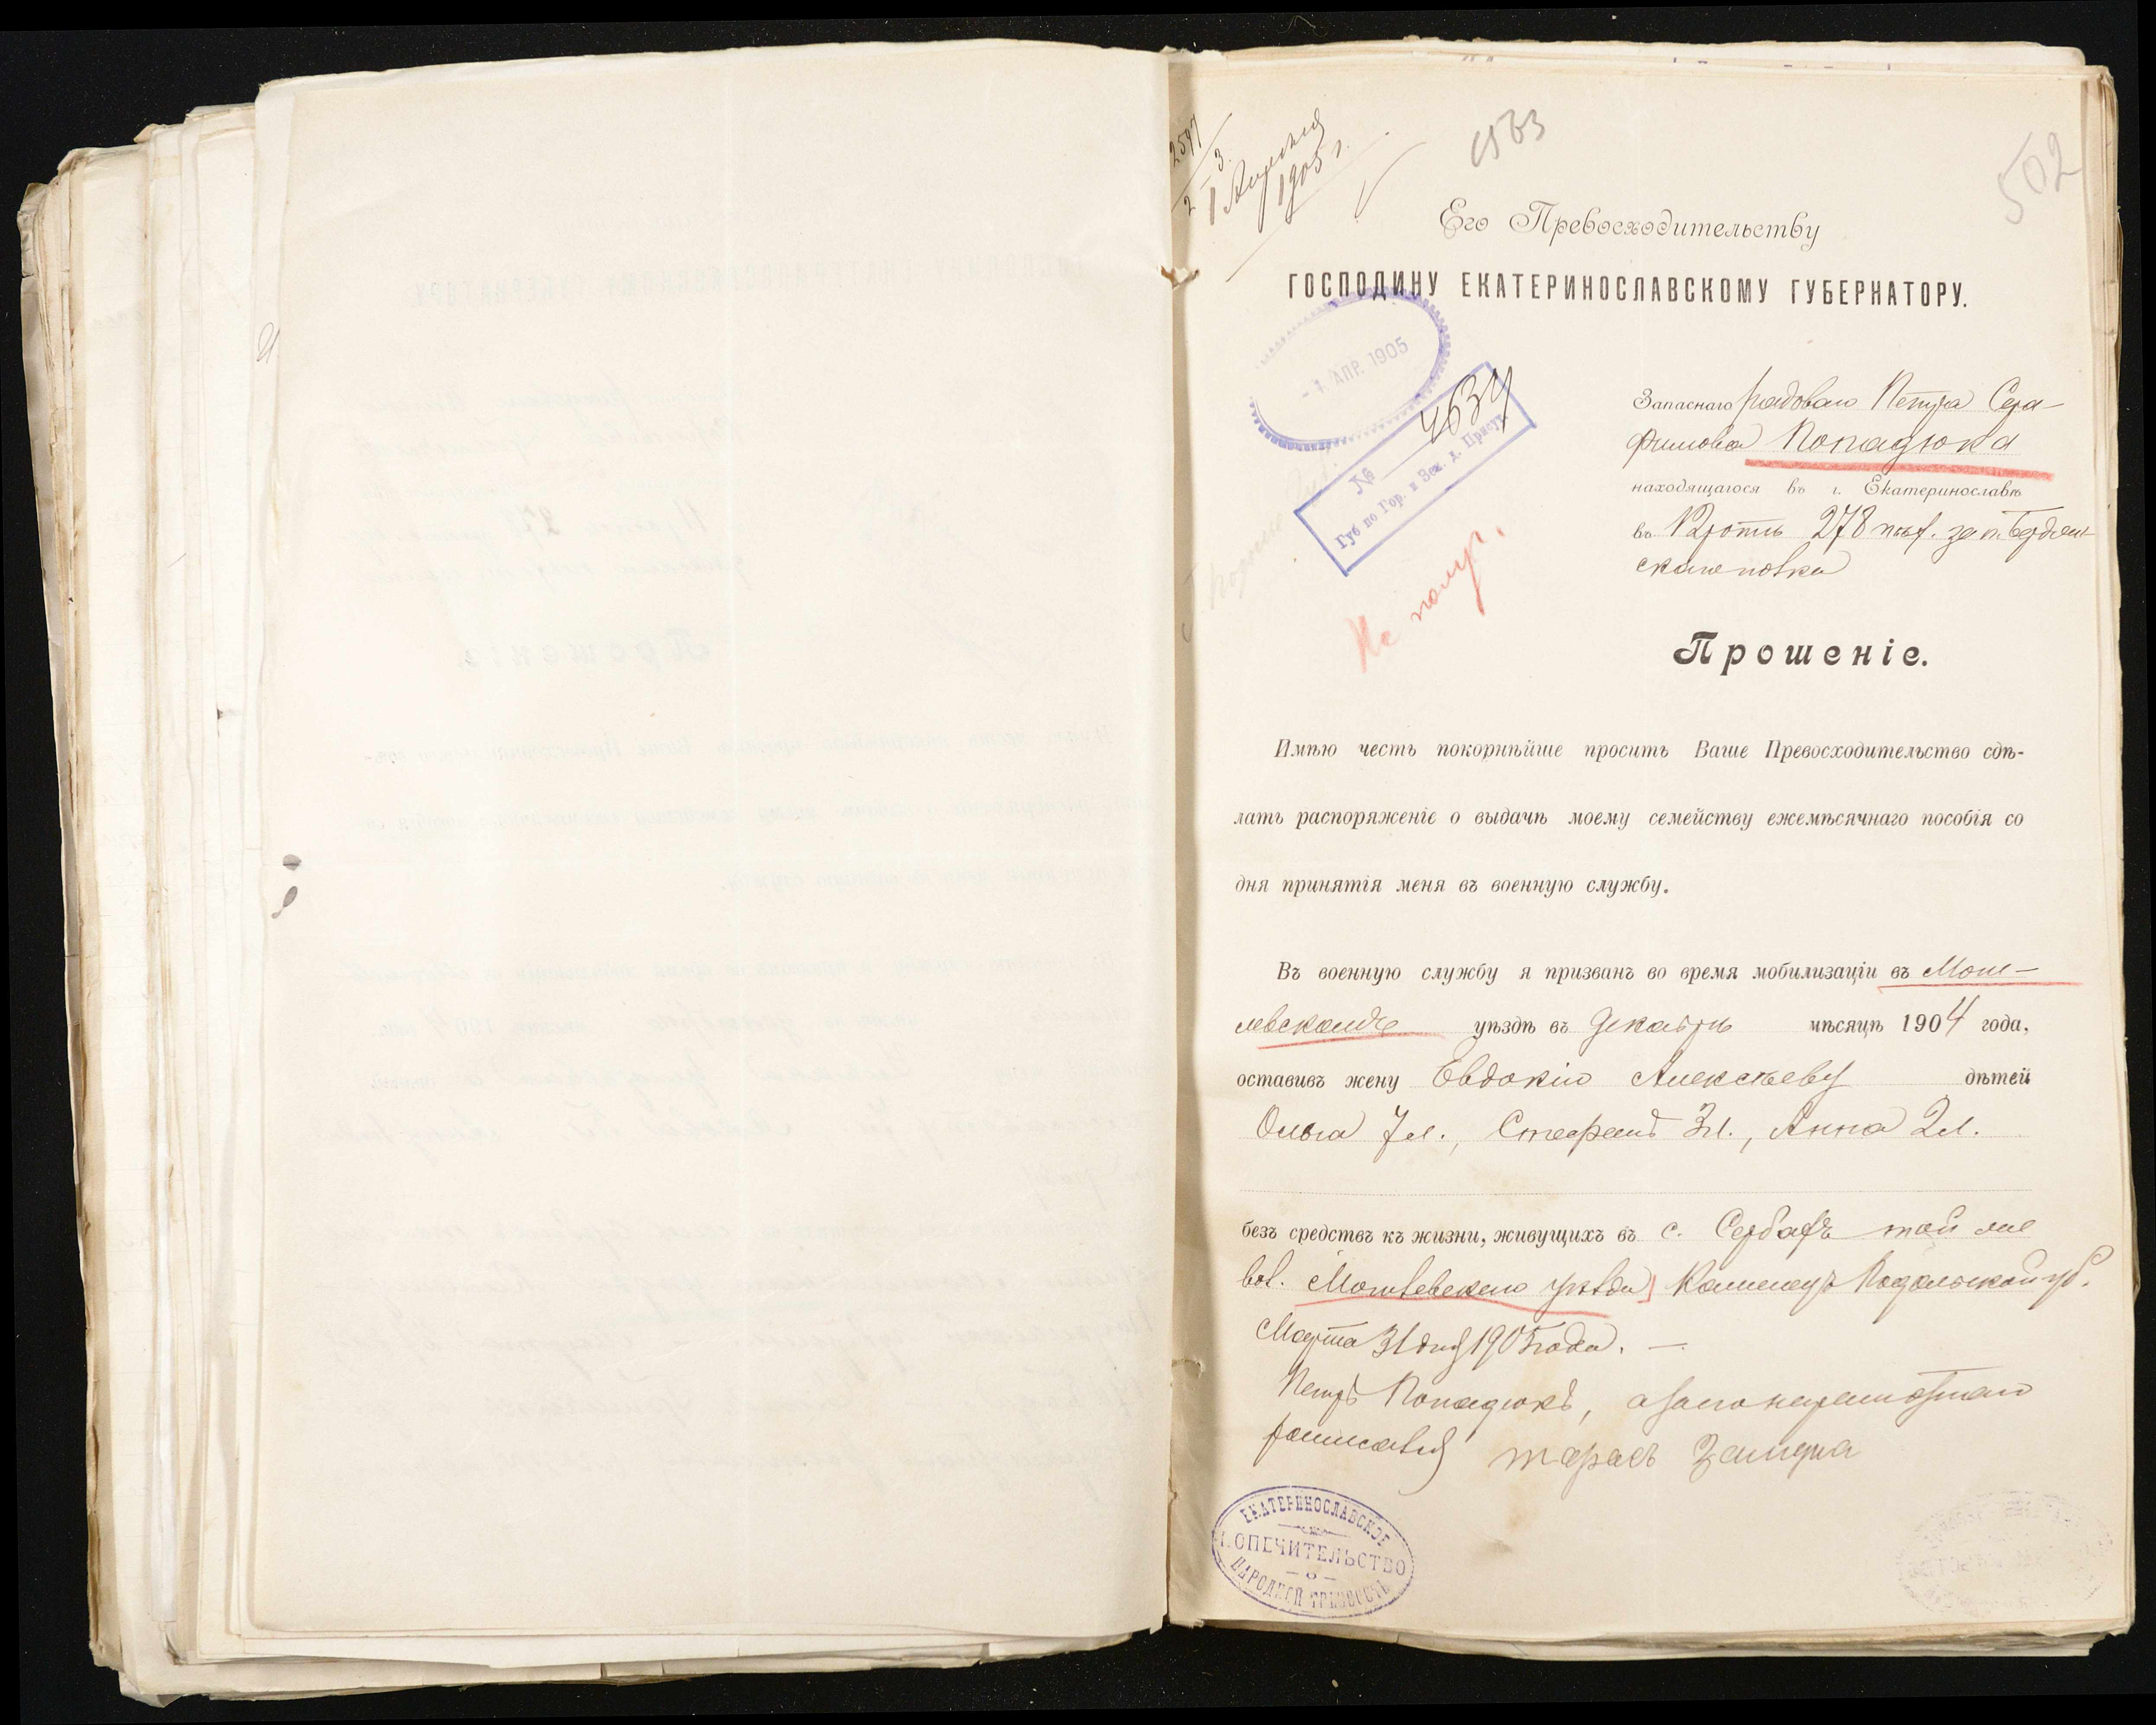 2597
2
3.
1 Апреля
1905 г.
1533
502
Его Превосходительству
ГОСПОДИНУ ЕКАТЕРИНОСЛАВСКОМУ ГУБЕРНАТОРУ.
- 1. АПР. 1905
№ 4634
Губ по Гор. и Зем. д. Присут.
Запаснаго рядоваго Петра Сера-
фимова Попадюка
находящагося въ г. Екатеринославѣ
въ 12 ротѣ 278 пѣх. зап. Бердян-
скаго полка
Прошеніе.
Имѣю честь покорнѣйше просить Ваше Превосходительство сдѣ-
лать распоряженіе о выдачѣ моему семейству ежемѣсячнаго пособія со
дня принятія меня въ военную службу.
Въ военную службу я призванъ во время мобилизаціи въ Моги-
левскомъ уѣздѣ въ Декабрѣ мѣсяцѣ 1904 года,
оставивъ жену Евдокію Алексѣеву дѣтей
Ольга 7 л., Стефанъ 3 л., Анна 2 л.
безъ средствъ къ жизни, живущихъ въ с. Сербахъ той же
вол. Могилевскаго уѣзда Каменецъ Подольской губ.
Марта 31 дня 1905 года. —
Петръ Попадюкъ, а за него неграмотнаго
росписался Тарасъ
ЕКАТЕРИНОСЛАВСКОЕ
ПОПЕЧИТЕЛЬСТВО
О
НАРОДНОЙ ТРЕЗВОСТИ